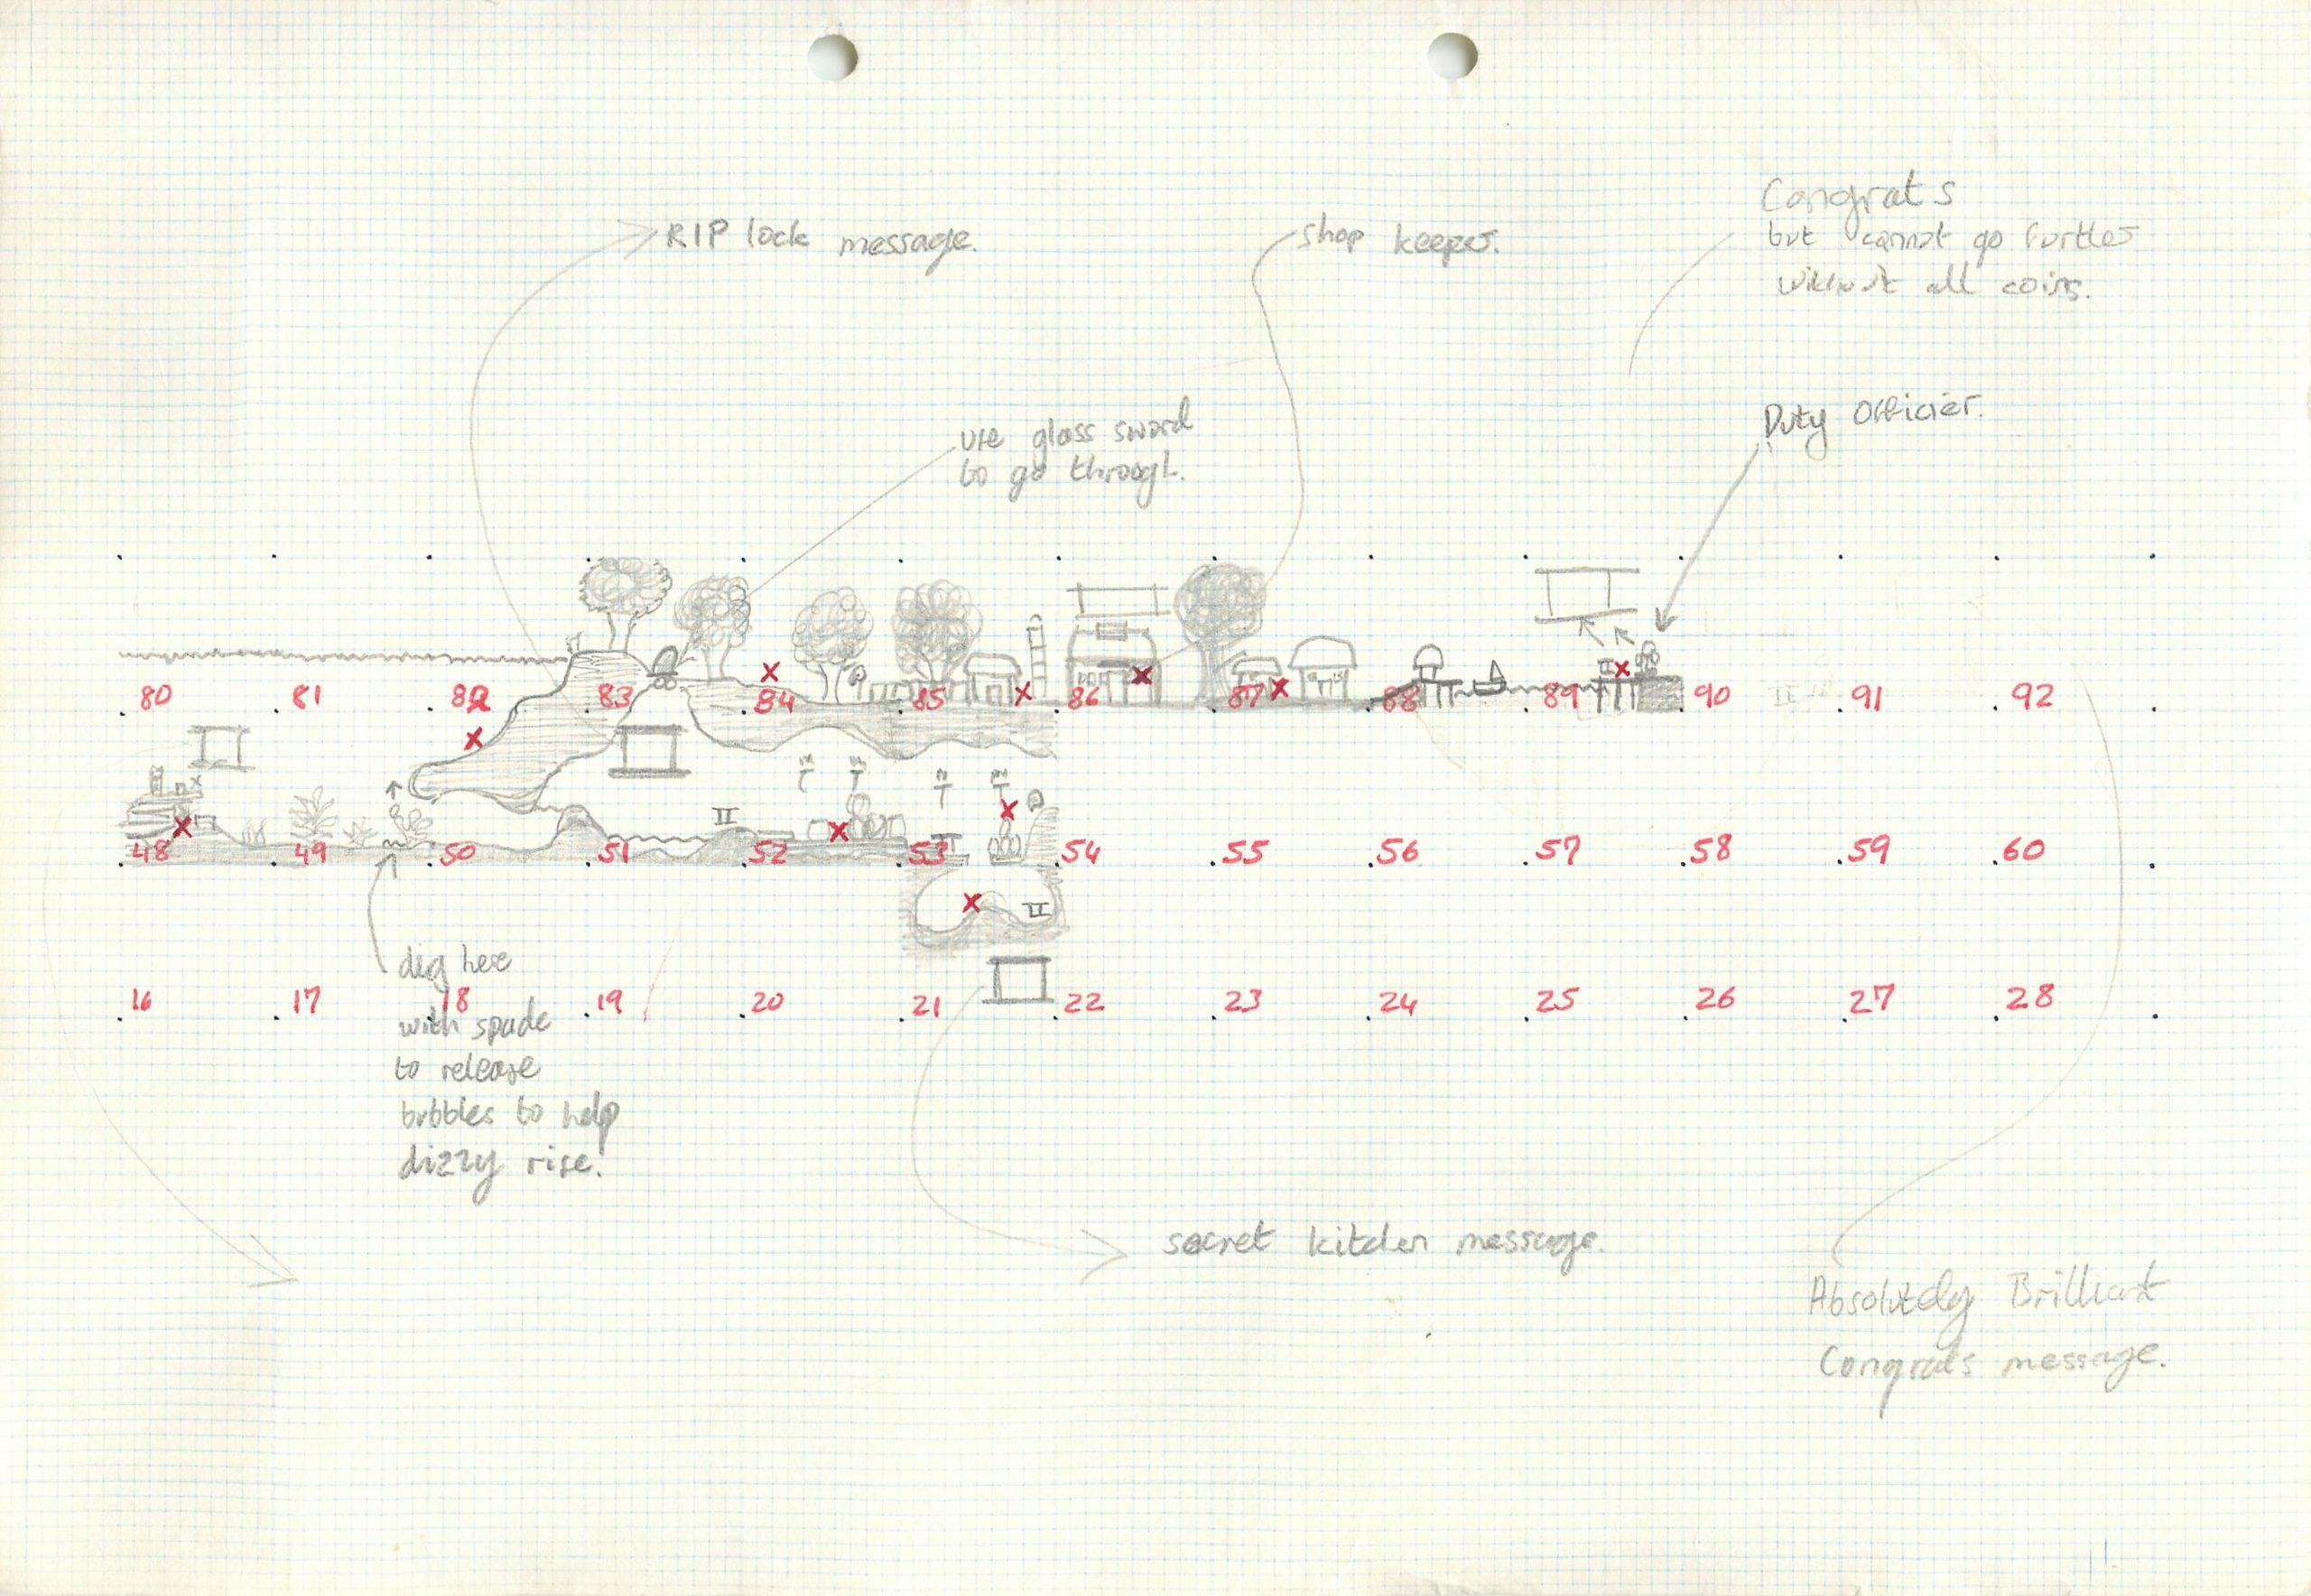 RIP lock message.
shop keeper.
Congrats
but cannot go further
without all coins.
use glass sword
to go through.
Duty Officier.
80 81 82 83 84 85 86 87 88 89 90 91 92
48 49 50 51 52 53 54 55 56 57 58 59 60
dig here
with spade
to release
bubbles to help
dizzy rise!
16 17 18 19 20 21 22 23 24 25 26 27 28
secret kitchen message.
Absolutely Brilliant
Congrats message.